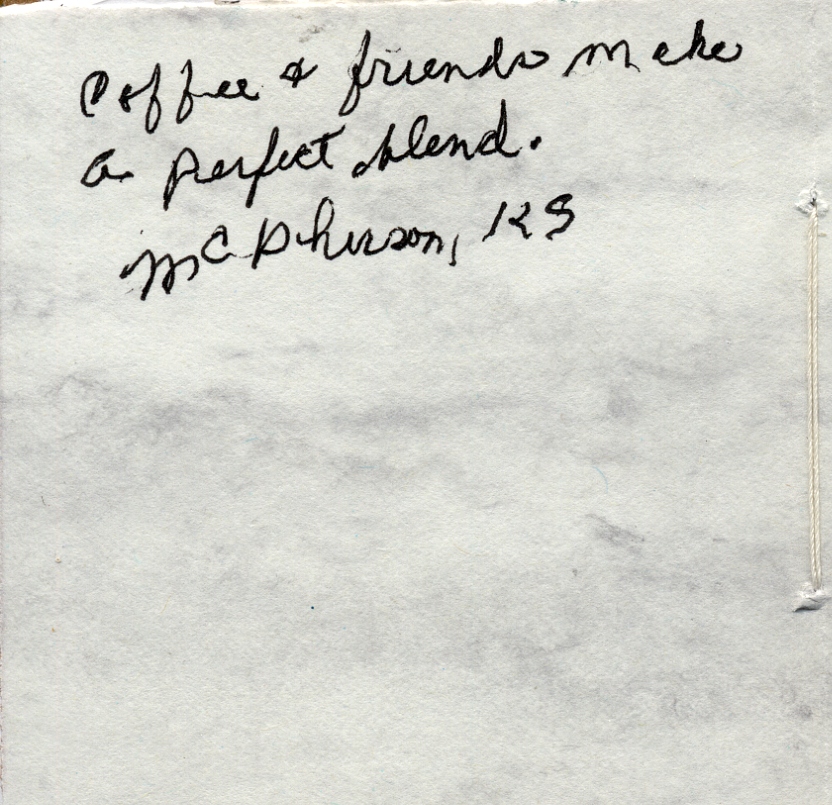 Coffee & friends make
a perfect blend.
McPherson, KS